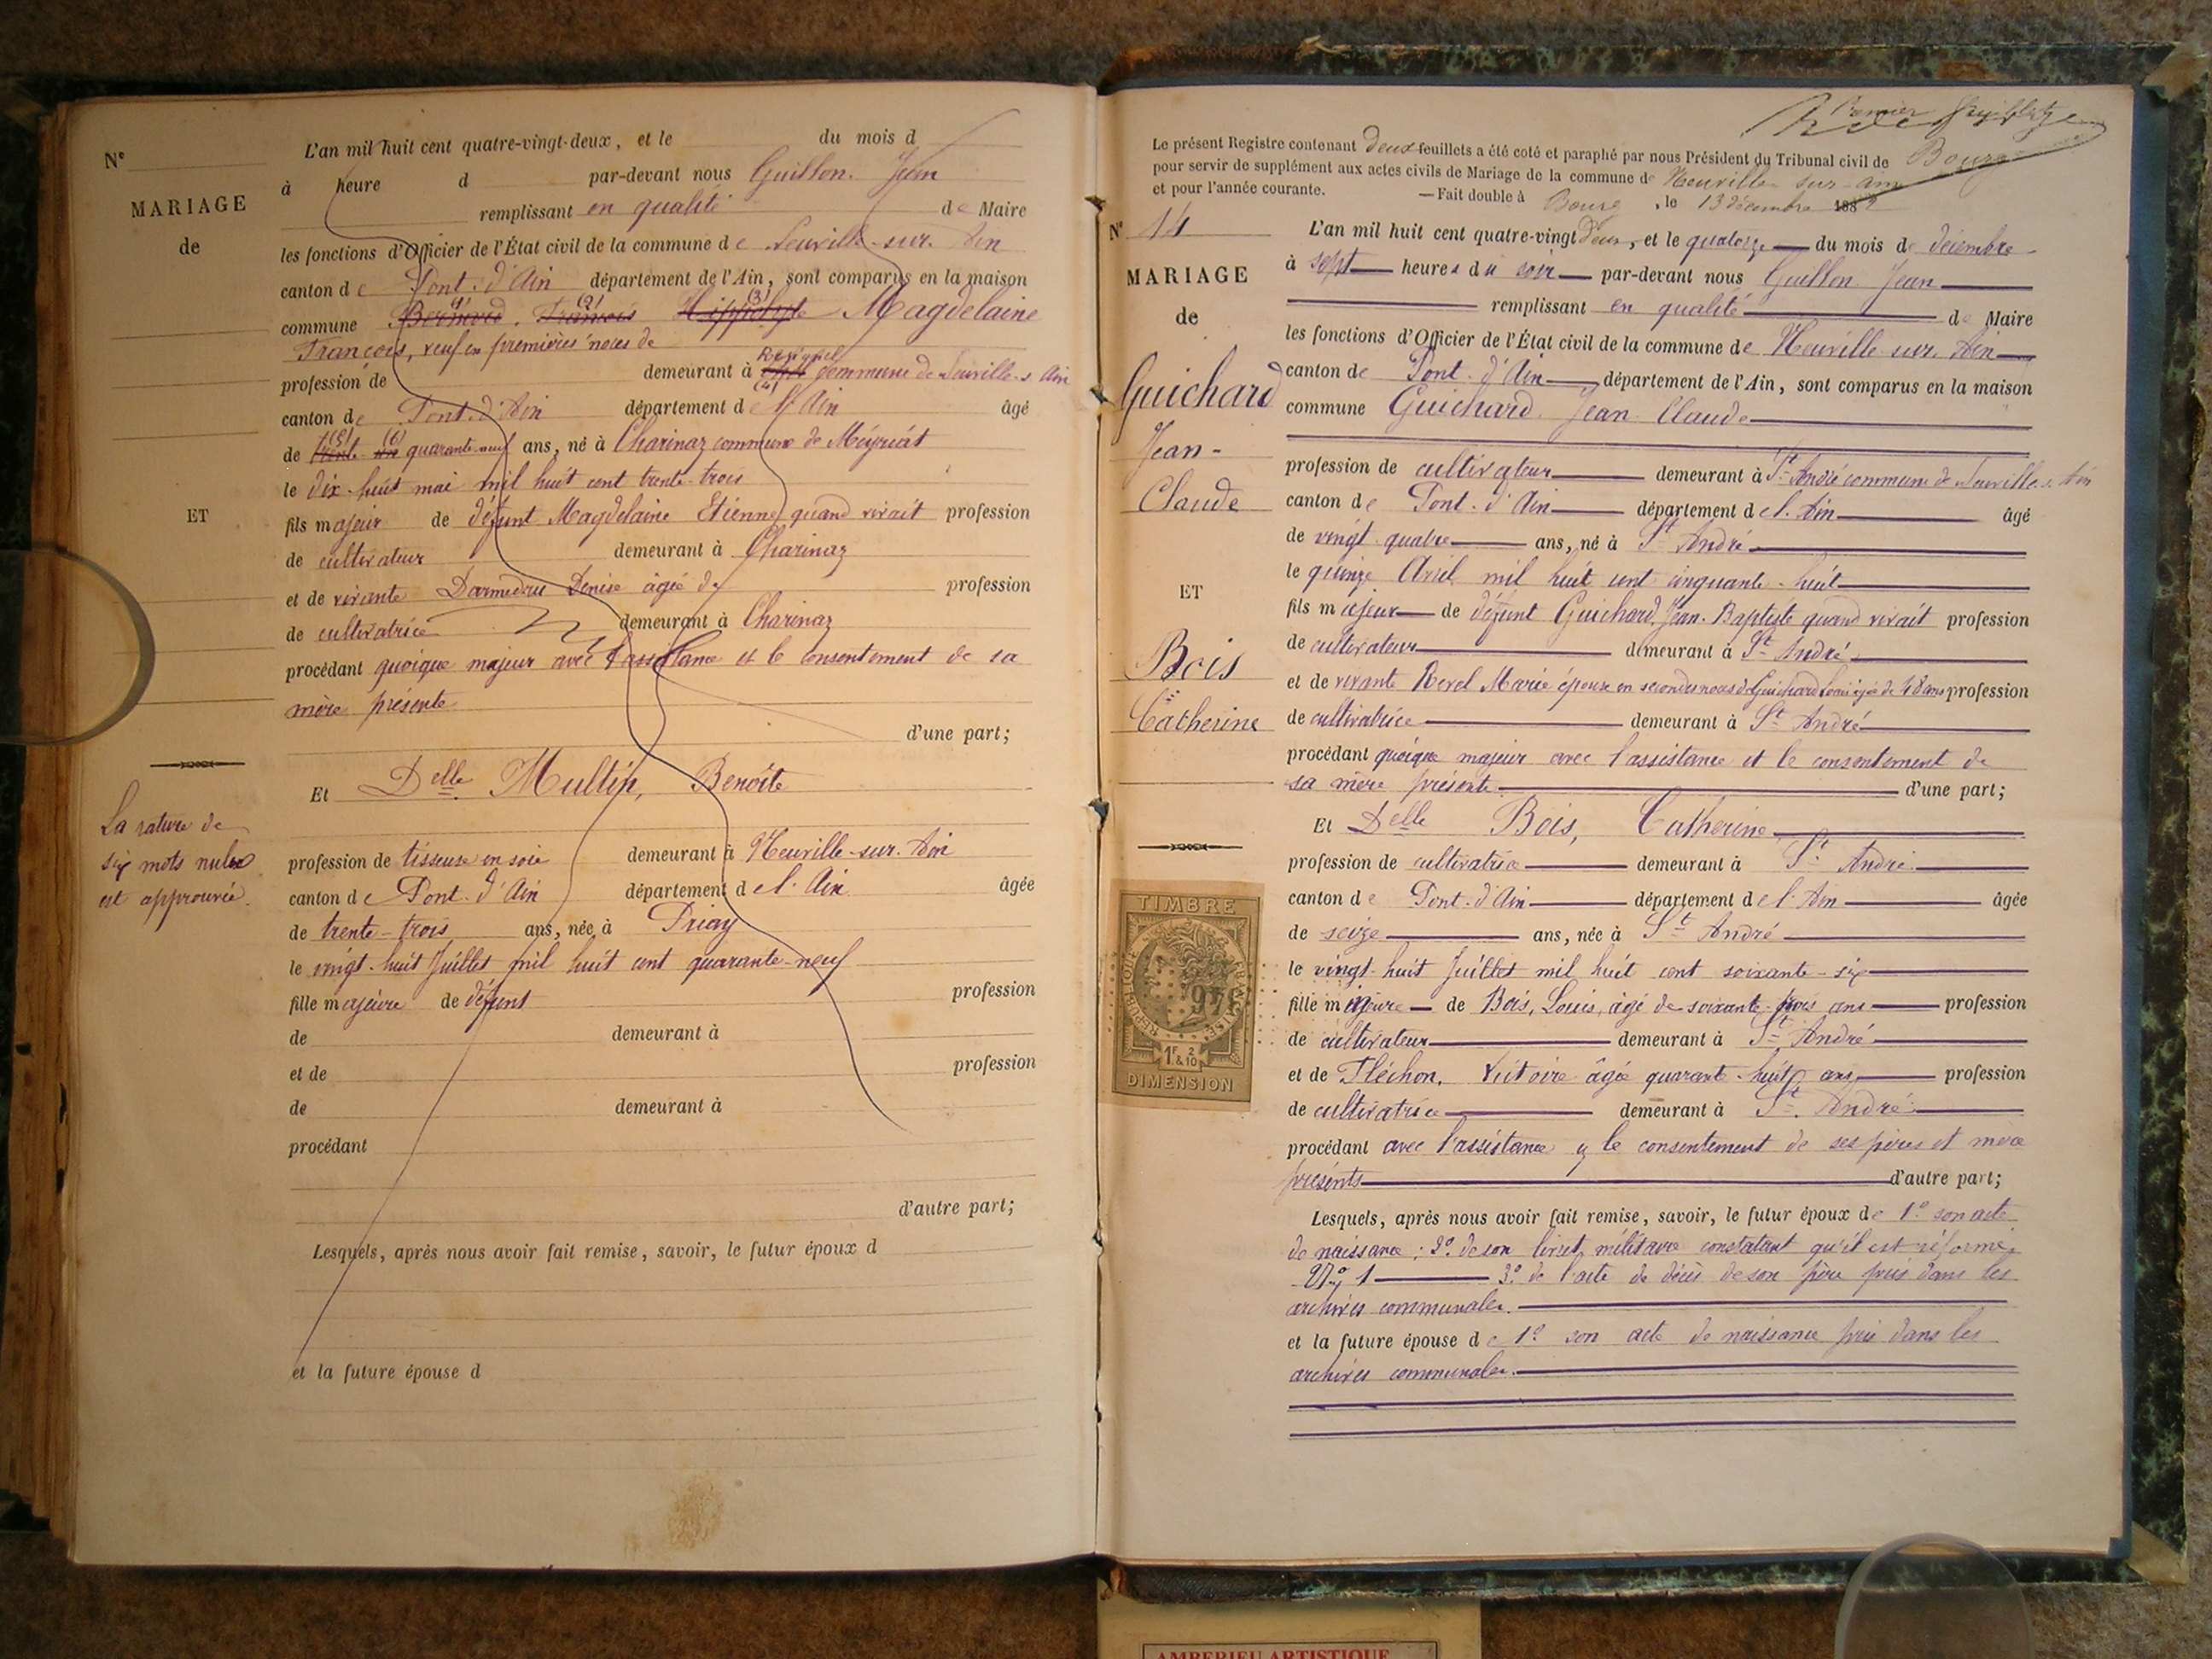 L'an mil huit cent quatre-vingt-deux, et le du mois d
N°
à heure d par-devant nous Guillon. Jean
MARIAGE
remplissant en qualité de Maire
de
les fonctions d'Officier de l'État civil de la commune de Neuville-sur-Ain
canton de Pont-d'Ain département de l'Ain, sont comparus en la maison
commune Bernard. François Hippolyte Magdelaine
(1) (2) (3)
François, veuf en premières noces de
profession de demeurant à commune de Neuville-s-Ain
(4)
canton de Pont-d'Ain département de l'Ain âgé
de trente-six quarante-neuf ans, né à Charinaz commune de Meyriat
(5) (6)
le dix-huit mai mil huit cent trente-trois
ET
fils majeur de défunt Magdelaine Etienne quand vivait profession
de cultivateur demeurant à Charinaz
et de vivante Darmedru Denise âgée de profession
de cultivatrice demeurant à Charinaz
procédant quoique majeur avec l'assistance et le consentement de sa
mère présente
d'une part;
Et Delle Multin, Benoîte
La rature de
six mots nuls
est approuvée.
profession de tisseuse en soie demeurant à Neuville-sur-Ain
canton de Pont-d'Ain département de l'Ain âgée
de trente-trois ans, née à Priay
le vingt-huit Juillet mil huit cent quarante-neuf
fille majeure de défunt profession
de demeurant à
et de profession
de demeurant à
procédant
d'autre part;
Lesquels, après nous avoir fait remise, savoir, le futur époux d
et la future épouse d
Premier feuillet
Le présent Registre contenant deux feuillets a été coté et paraphé par nous Président du Tribunal civil de Bourg
pour servir de supplément aux actes civils de Mariage de la commune de Neuville-sur-Ain
et pour l'année courante. — Fait double à Bourg, le 13 décembre 1882
N° 14
L'an mil huit cent quatre-vingt deux, et le quatorze du mois de décembre
à sept heures du soir par-devant nous Guillon Jean
MARIAGE
remplissant en qualité de Maire
de
les fonctions d'Officier de l'État civil de la commune de Neuville-sur-Ain
canton de Pont-d'Ain, département de l'Ain, sont comparus en la maison
Guichard
commune Guichard Jean Claude
Jean-
Claude
profession de cultivateur demeurant à St André commune de Neuville-s-Ain
canton de Pont-d'Ain département de l'Ain âgé
de vingt-quatre ans, né à St André
le quinze Avril mil huit cent cinquante-huit
ET
fils majeur de défunt Guichard, Jean-Baptiste quand vivait profession
de cultivateur demeurant à St André
Bois
et de vivante Revel Marie épouse en secondes noces de Guichard Louis âgée de 48 ans profession
Catherine
de cultivatrice demeurant à St André
procédant quoique majeur avec l'assistance et le consentement de
sa mère présente d'une part;
Et Delle Bois, Catherine
profession de cultivatrice demeurant à St André
canton de Pont-d'Ain département de l'Ain âgée
de seize ans, née à St André
le vingt-huit Juillet mil huit cent soixante-six
fille mineure de Bois, Louis, âgé de soixante-trois ans profession
de cultivateur demeurant à St André
et de Fléchon, Victoire âgée quarante-huit ans profession
de cultivatrice demeurant à St André
procédant avec l'assistance et le consentement de ses père et mère
présents d'autre part;
Lesquels, après nous avoir fait remise, savoir, le futur époux de 1° son acte
de naissance; 2° de son livret militaire constatant qu'il est réformé
N° 1 3° de l'acte de décès de son père pris dans les
archives communales.
et la future épouse de 1° son acte de naissance pris dans les
archives communales.
TIMBRE
RÉPUBLIQUE FRANÇAISE
1F 2/10
DIMENSION
AMBERIEU ARTISTIQUE